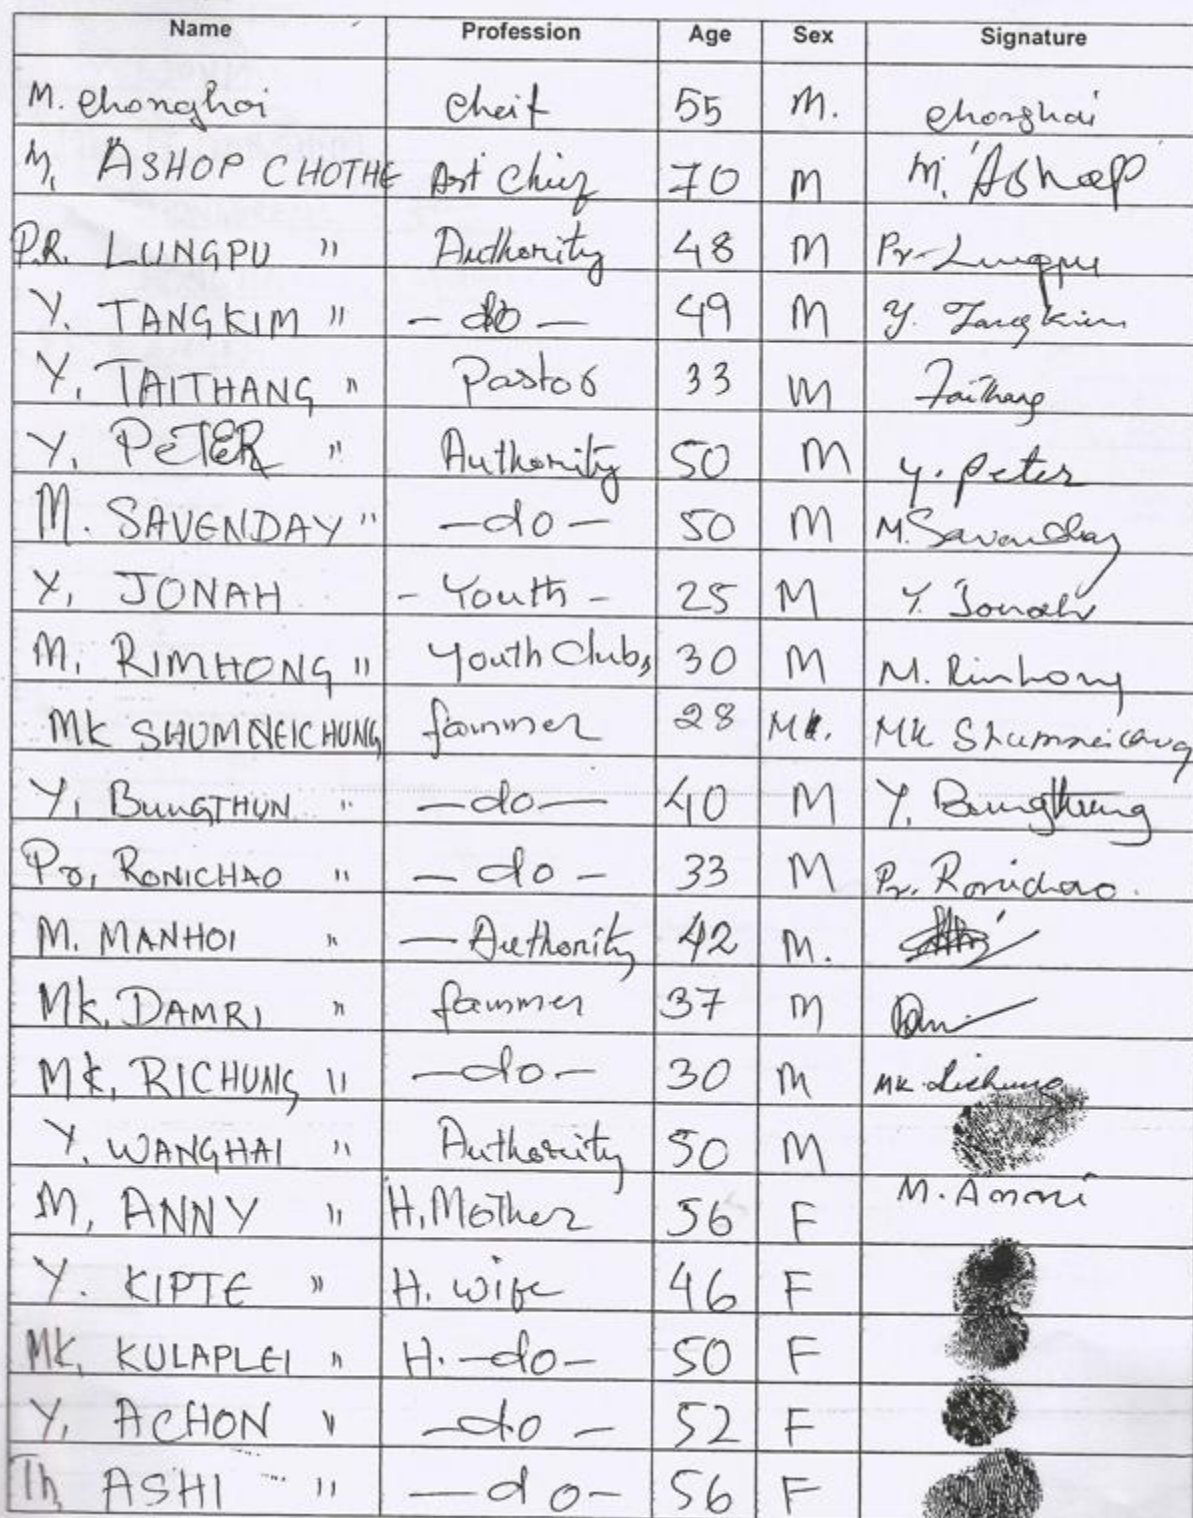 Name Profession Age Sex Signature
M. Chonghoi Cheif 55 M. Chonghoi
M, ASHOP CHOTHE Ast Chief 70 M M. Ashop
P.R. LUNGPU " Authority 48 M Pr. Lungpu
Y. TANGKIM " - do - 49 M Y. Tangkim
Y, TAITHANG " Pastor 33 M Taithang
Y, PETER " Authority 50 M Y. Peter
M. SAVENDAY " - do - 50 M M. Savenday
Y, JONAH - Youth - 25 M Y. Jonah
M, RIMHONG " Youth Clubs 30 M M. Rimhong
MK SHUMNEICHUNG fammer 28 MK Shumneichung
Y, BUNGTHUN " - do - 40 M Y, Bungthung
Pr, RONICHAO " - do - 33 M Pr. Ronichao.
M. MANHOI " - Authority 42 M.
Mk, DAMRI " fammer 37 M
Mk, RICHUNG " - do - 30 M MK. Richung
Y, WANGHAI " Authority 50 M
M, ANNY " H, Mother 56 F M. Anni
Y. KIPTE " H. Wife 46 F
MK, KULAPLEI " H. - do - 50 F
Y, ACHON " - do - 52 F
Th ASHI " - do - 56 F